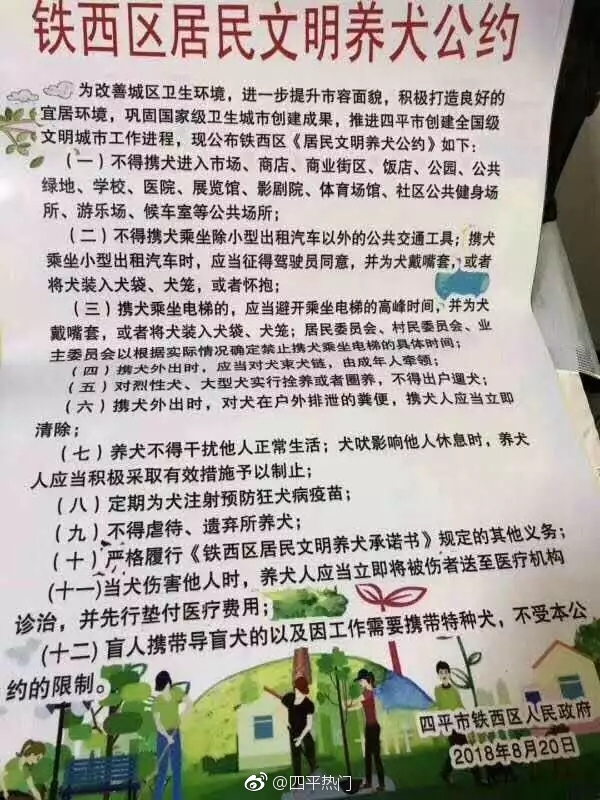 铁西区居民文明养犬公约
为改善城区卫生环境，进一步提升市容面貌，积极打造良好的
宜居环境，巩固国家级卫生城市创建成果，推进四平市创建全国级
文明城市工作进程，现公布铁西区《居民文明养犬公约》如下：
（一）不得携犬进入市场、商店、商业街区、饭店、公园、公共
绿地、学校、医院、展览馆、影剧院、体育场馆、社区公共健身场
所、游乐场、候车室等公共场所；
（二）不得携犬乘坐除小型出租汽车以外的公共交通工具；携犬
乘坐小型出租汽车时，应当征得驾驶员同意，并为犬戴嘴套，或者
将犬装入犬袋、犬笼，或者怀抱；
（三）携犬乘坐电梯的，应当避开乘坐电梯的高峰时间，并为犬
戴嘴套，或者将犬装入犬袋、犬笼；居民委员会、村民委员会、业
主委员会以根据实际情况确定禁止携犬乘坐电梯的具体时间；
（四）携犬外出时，应当对犬束犬链，由成年人牵领；
（五）对烈性犬、大型犬实行拴养或者圈养，不得出户遛犬；
（六）携犬外出时，对犬在户外排泄的粪便，携犬人应当立即
清除；
（七）养犬不得干扰他人正常生活；犬吠影响他人休息时，养犬
人应当积极采取有效措施予以制止；
（八）定期为犬注射预防狂犬病疫苗；
（九）不得虐待、遗弃所养犬；
（十）严格履行《铁西区居民文明养犬承诺书》规定的其他义务；
（十一）当犬伤害他人时，养犬人应当立即将被伤者送至医疗机构
诊治，并先行垫付医疗费用；
（十二）盲人携带导盲犬的以及因工作需要携带特种犬，不受本公
约的限制。
四平市铁西区人民政府
2018年8月20日
@四平热门